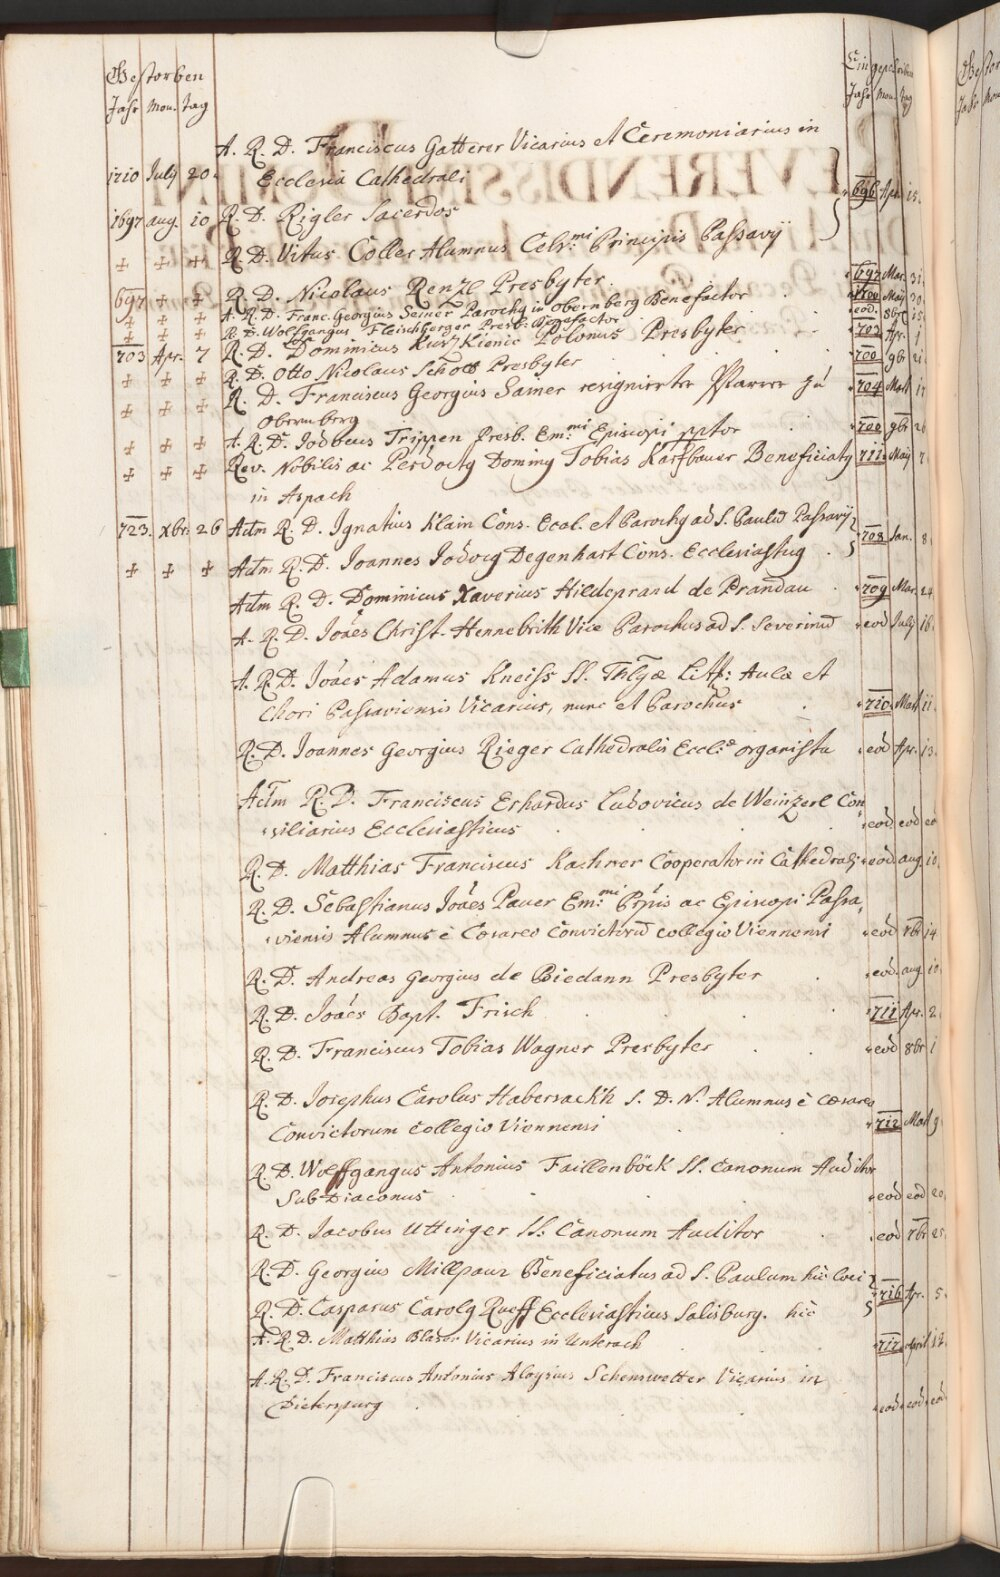 Gestorben
Jahr Mon. Tag
Eingeschriben
Jahr Mon. Tag
A. R. D. Franciscus Gatterer Vicarius et Ceremoniarius in
1710 July 20 Ecclesia Cathedrali 696 Apr. 15.
1697 aug. 10 R. D. Rigler Sacerdos
+ + + R. D. Vitus Coller Alumnus Cels.mi Principis Passavÿ
697 + + R. D. Nicolaus Renzl Presbyter. 697 Mar. 31.
+ + + A. R. D. Franc. Georgius Seiner Parochg in Obernberg Benefactor 1700 Maÿ 30.
+ + + R. D. Wolfgangus Fleischberger Presb. Benefactor eod. 8br 15
703 Apr. 7 R. D. Dominicus Kurz Kienic Polonus Presbyter 702 Apr. 1
+ + + R. D. Otto Nicolaus Schott Presbyter 700 9br 21
+ + + R. D. Franciscus Georgius Sainer resignirter Pfarrer zu 704 Mart 17
Obernberg
+ + + A. R. D. Jodocus Trippen Presb. Em.mi Episcopi pptor 700 9br 26
+ + + Rev. Nobilis ac Perdoctg Doming Tobias Karfbauer Beneficiatg 711 Maÿ 7
in Aspach
723. xbr. 26 Adm R. D. Ignatius Klain Cons. Eccl. et Parochg ad S. Paulū Passavÿ 708 Jan. 8
+ + + Adm R. D. Joannes Jodocg Degenhart Cons. Ecclesiasticg
Adm R. D. Dominicus Xaverius Hildeprand de Prandau 709 Mar. 24
A. R. D. Joães Christ. Hennebrith Vice Parochus ad S. Severinū eod July 16.
A. R. D. Joães Adamus Kneiss SS. Thlgæ Litt: Aulæ et
Chori Passaviensis Vicarius, nunc et Parochus 710. Mart 11.
R. D. Joannes Georgius Rieger Cathedralis Eccl.æ organista eod Apr. 13.
Adm R. D. Franciscus Erhardus Ludovicus de Weinzerl Con
siliarius Ecclesiasticus eod eod eo
R. D. Matthias Franciscus Kachrer Cooperator in Cathedrali eod. aug. 10.
R. D. Sebastianus Joães Paver Em.mi Prpis ac Episcopi Passa
viensis Alumnus è Cæsareo Convictorū collegio Viennensi eod 8br 14
R. D. Andreas Georgius de Biedann Presbyter eod. aug. 10.
R. D. Joães Bapt. Frisch 711 Apr. 2
R. D. Franciscus Tobias Wagner Presbyter eod 8br 1
R. D. Josephus Carolus Habersackh S. D. N. Alumnus è cæsareo
Convictorum collegio Viennensi 712 Mart 9
R. D. Wolffgangus Antonius Faillenböck SS. Canonum Auditor
SubDiaconus eod eod 20.
R. D. Jacobus Uttinger SS. Canonum Auditor eod 7br 25.
R. D. Georgius Millpaur Beneficiatus ad S. Paulum hic loci 716 Apr. 5.
R. D. Casparus Carolg Rueff Ecclesiasticus Salisburg. hic
A. R. D. Matthius Vicarius in Unterach 717 April 12.
A. R. D. Franciscus Antonius Aloysius Schenswetter Vicarius in
Dieterspurg eod eod eod